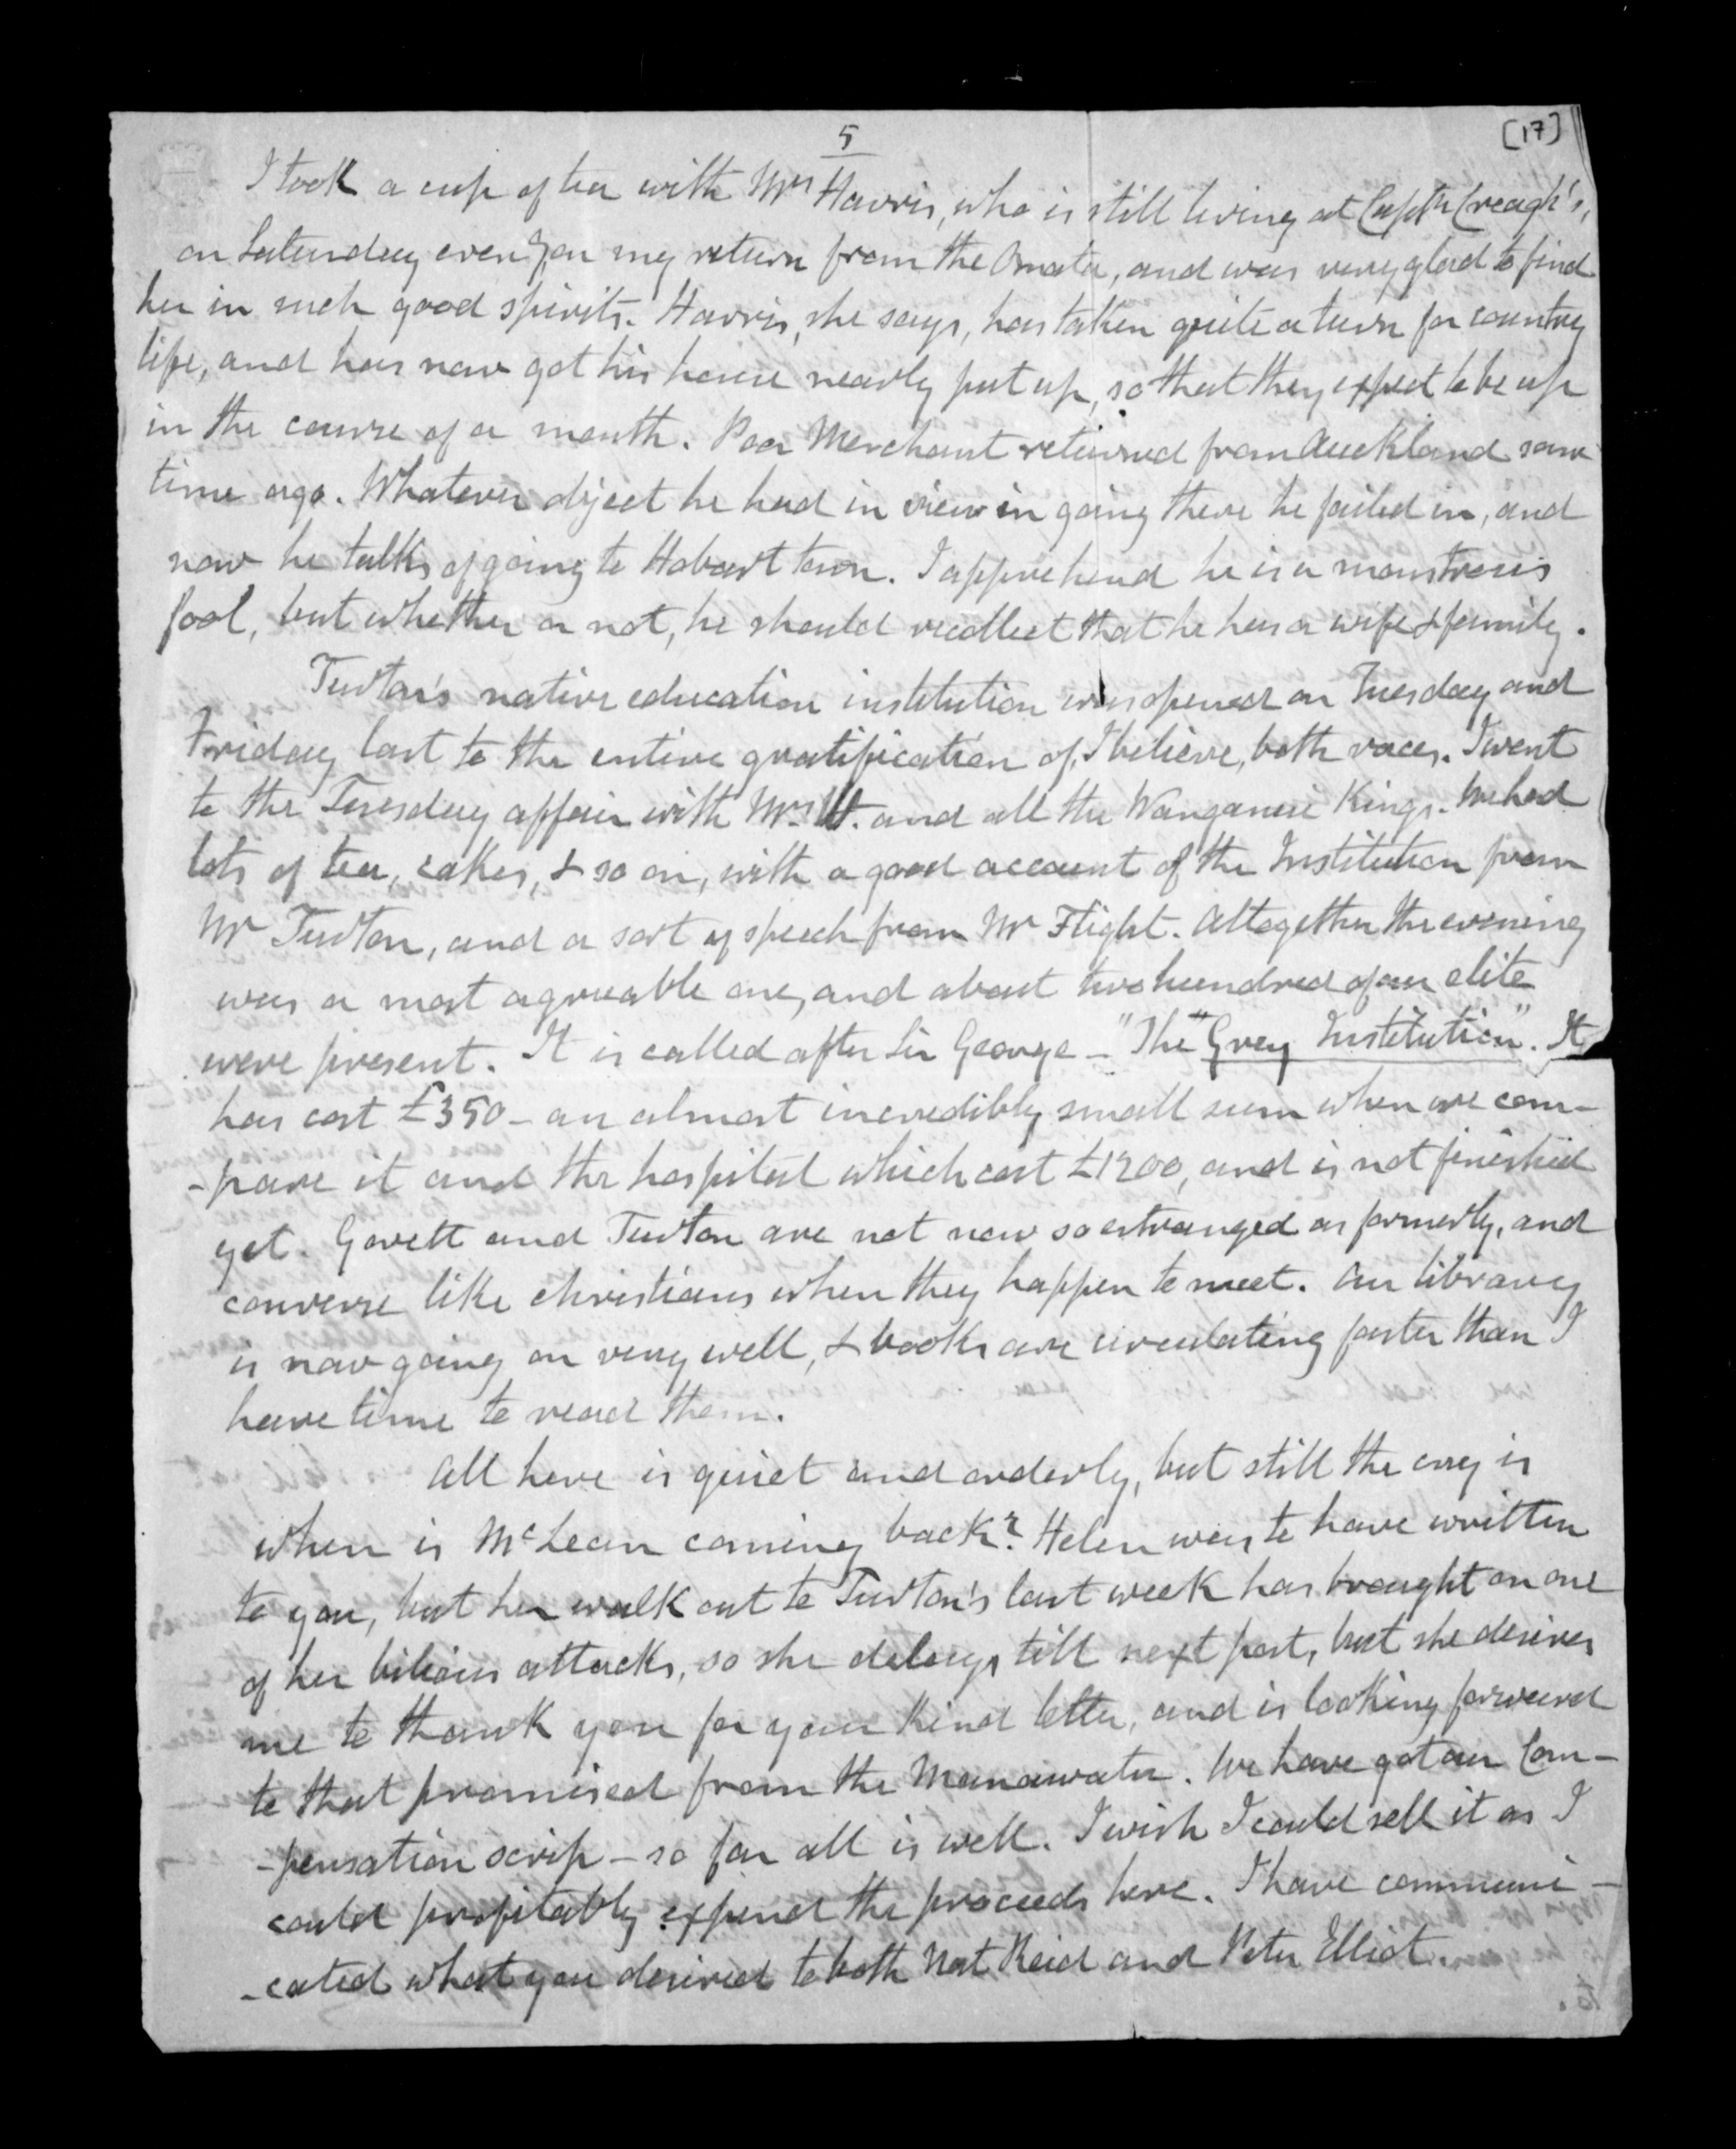 5
[17]
I took a cup of tea with Mrs Harris, who is still living at Captn Creagh's,
on Saturday eveng on my return from the Omata, and was very glad to find
her in such good spirits. Harris, she says, has taken quite a turn for country
life, and has now got his house nearly put up, so that they expect to be up
in the course of a month. Poor Merchant returned from Auckland some
time ago. Whatever object he had in view in going there he failed in, and
now he talks of going to Hobart town. I apprehend he is a monstrous
fool, but whether or not, he should recollect that he has a wife & family.
Turton's native education institution was opened on Tuesday and
Friday last to the entire gratification of, I believe, both races. I went
to the Tuesday affair with Mrs H. and all the Wanganui Kings. We had
lots of tea, cakes, & so on, with a good account of the Institution from
Mr Turton, and a sort of speech from Mr Flight. Altogether the evening
was a most agreeable one, and about two hundred of our elite
were present. It is called after Sir George - "The "Grey Institution". It
has cost £350 - an almost incredibly small sum when we com-
-pare it and the hospital which cost £1200, and is not finished
yet. Govett and Turton are not now so estranged as formerly, and
converse like christians when they happen to meet. Our library
is now going on very well, & books are circulating faster than I
have time to read them.
All here is quiet and orderly, but still the cry is
when is McLean coming back? Helen was to have written
to you, but her walk out to Turton's last week has brought on one
of her bilious attacks, so she delays till next post, but she desires
me to thank you for your kind letter, and is looking forward
to that promised from the Manawatu. We have got our Com-
-pensation scrip - so far all is well. I wish I could sell it as I
could profitably expend the proceeds here. I have communi-
-cated what you desired to both Nat Reid and Peter Elliot.